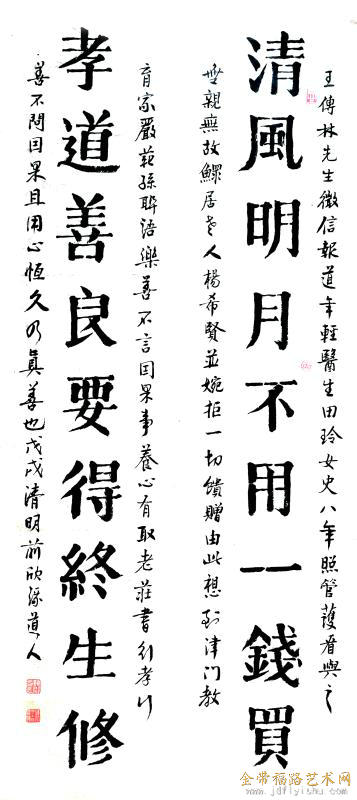 王傳林先生微信報道年輕醫生田玲女史八年照管護看與之
清風明月不用一錢買
無親無故鰥居老人楊希賢並婉拒一切饋贈由此想到津門教
育家嚴範孫聯語樂善不言因果事養心有取老莊書行孝行
孝道善良要得終生修
善不問因果且用心恆久乃真善也戊戌清明前欣 道人
金带福路艺术网
www.jdflyishu.com